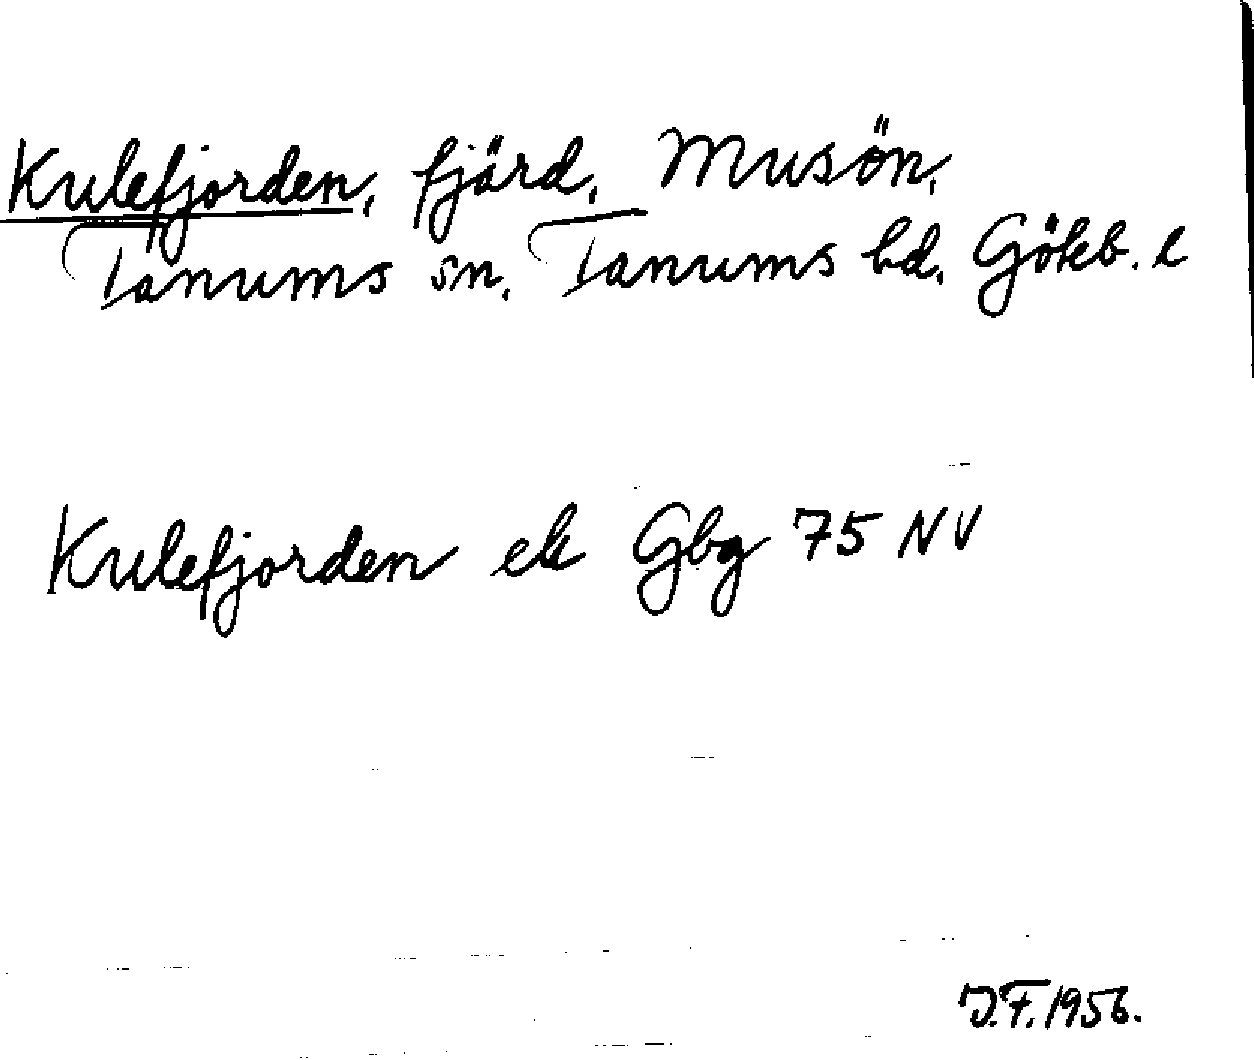 Kulefjorden, fjärd, Musön,
Tanums sn, Tanums hd, Göteb. l
Kulefjorden ek Gbg 75 NV
J.F. 1956.